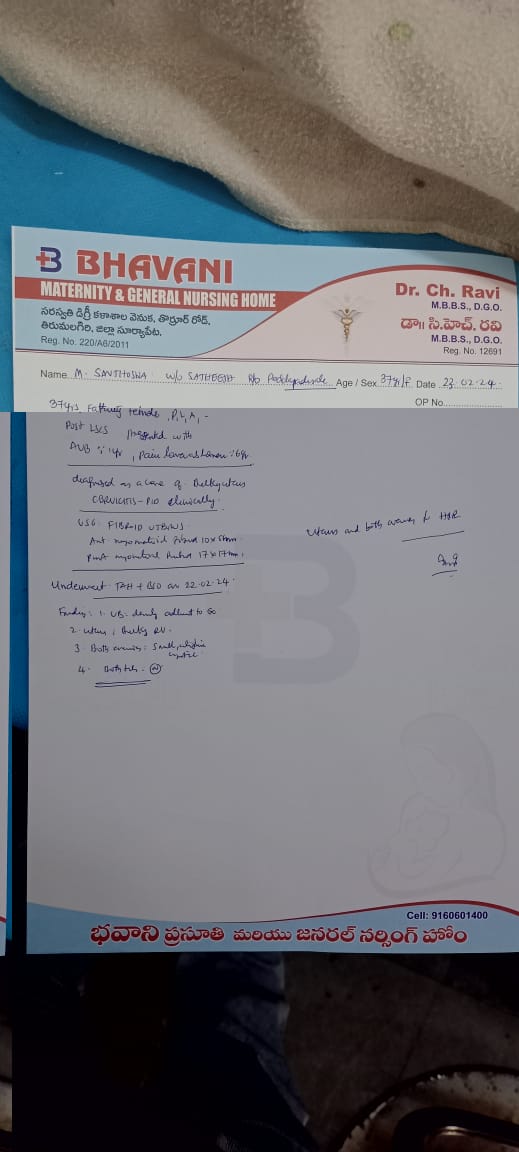 BHAVANI
MATERNITY & GENERAL NURSING HOME
సరస్వతి డిగ్రీ కళాశాల వెనుక, తొర్రూర్ రోడ్,
తిరుమలగిరి, జిల్లా సూర్యాపేట.
Reg. No. 220/A6/2011
Dr. Ch. Ravi
M.B.B.S., D.G.O.
డా|| సి.హెచ్. రవి
M.B.B.S., D.G.O.
Reg. No. 12691
Name M. SANTHOSHA W/o SATHEESH R/o Age / Sex 37yr/F Date 23.02.24.
OP No.
37yrs female, P1L1A1
Post LSCS presented with
AUB 1yr, pain
diagnosed as a case of Bulky uterus
CERVICITIS - PID clinically.
USG: FIBROID UTERUS
Ant. myometrial 10x
Post myometrial 17x17mm
Underwent TAH + BSO on 22.02.24.
Findings: 1. UB: densely adherent to
2. Uterus: Bulky RV.
3. Both ovaries: Small,
4. Both tubes: N
Uterus and both ovaries for HPR
Cell: 9160601400
భవాని ప్రసూతి మరియు జనరల్ నర్సింగ్ హోం